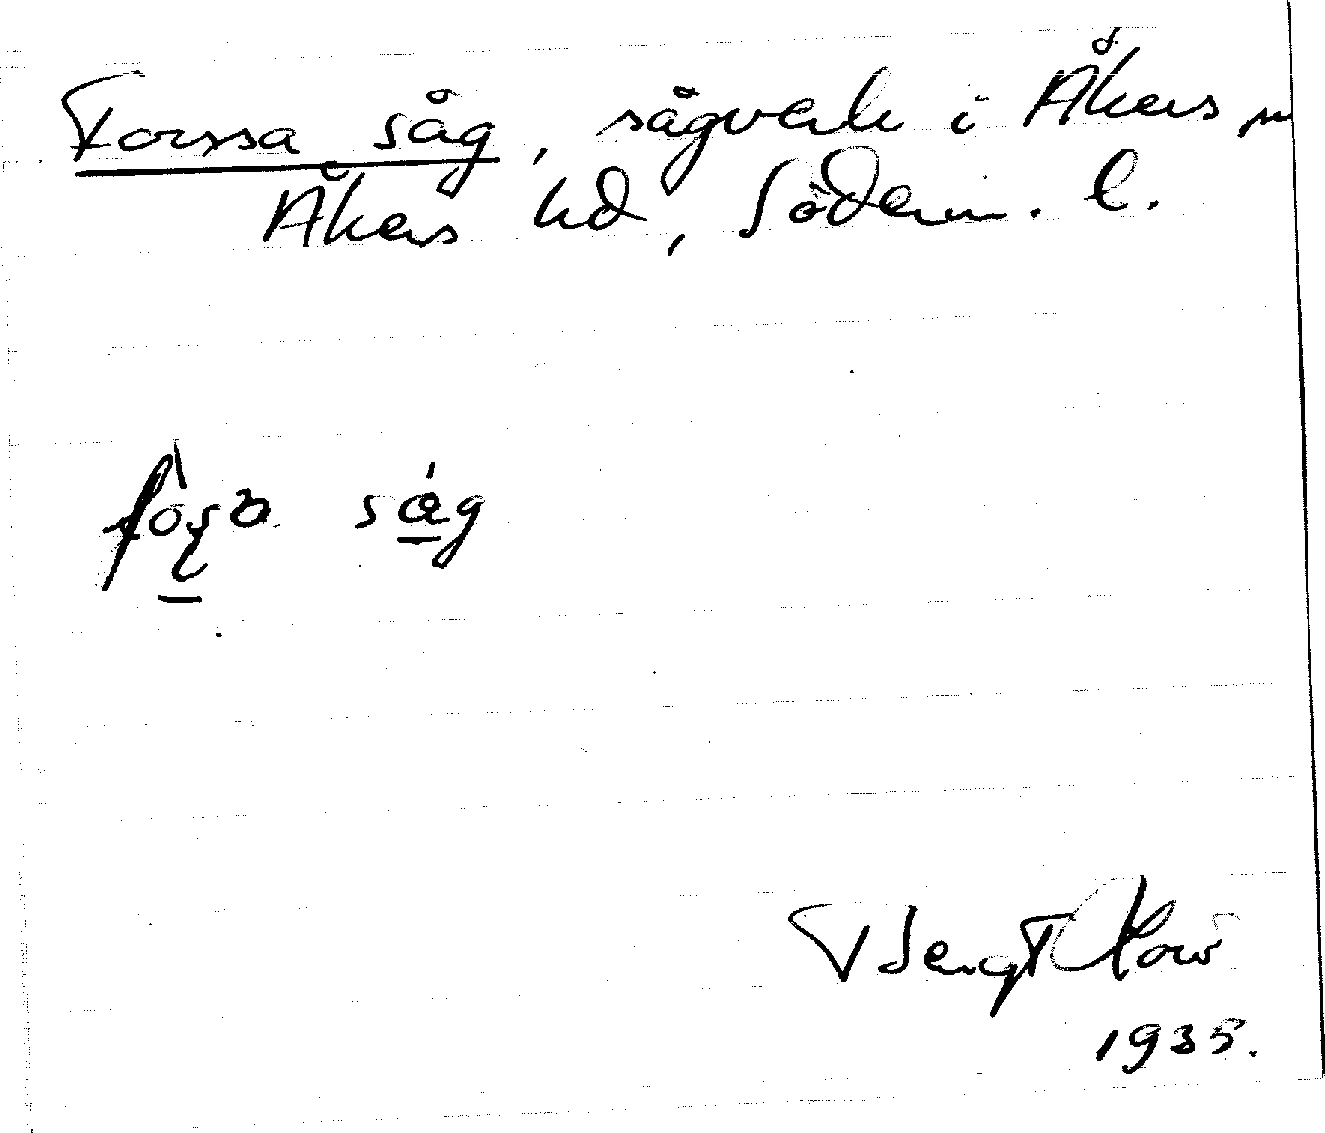 Forssa såg, sågverk i Åkers sn
Åkers hd, Söderm. l.
såg
Bengt
1935.